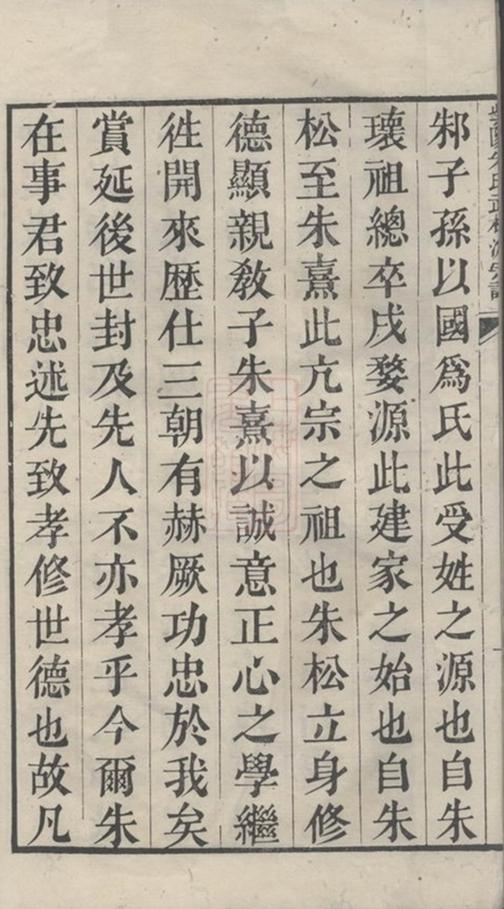 邾子孫以國爲氏此受姓之源也自朱
瓌祖總卒戍婺源此建家之始也自朱
松至朱熹此亢宗之祖也朱松立身修
德顯親敎子朱熹以誠意正心之學繼
徃開來歷仕三朝有赫厥功忠於我矣
賞延後世封及先人不亦孝乎今爾朱
在事君致忠述先致孝修世德也故凡